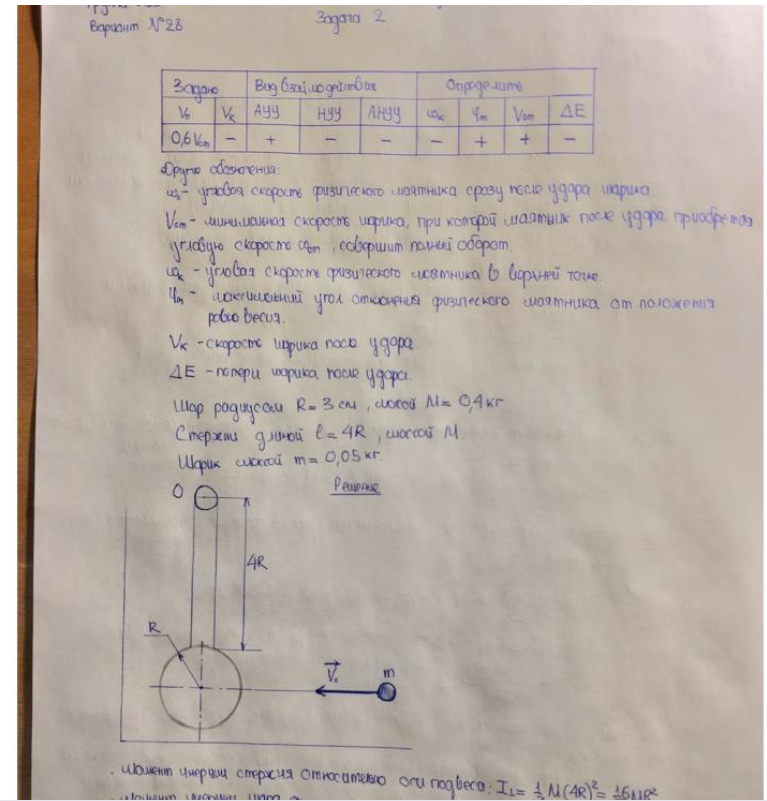 Вариант №28
Задача 2
Задано Вид взаимодействия Определить
V₀ Vк АУУ НУУ АНУУ ωк φm V₀m ΔE
0,6V₀m – + – – – + + –
Другие обозначения:
ω₀ – угловая скорость физического маятника сразу после удара шарика
V₀m – минимальная скорость шарика, при которой маятник после удара приобретая
угловую скорость ω₀m, совершит полный оборот.
ωк – угловая скорость физического маятника в верхней точке.
φm – максимальный угол отклонения физического маятника от положения
равновесия.
Vк – скорость шарика после удара.
ΔE – потери шарика после удара.
Шар радиусом R = 3 см, массой M = 0,4 кг
Стержни длиной l = 4R, массой M.
Шарик массой m = 0,05 кг.
Решение
O
4R
R
V₀ m
. Момент инерции стержня относительно оси подвеса: I₁ = 1/3 M(4R)² = 16MR²
Момент инерции шара